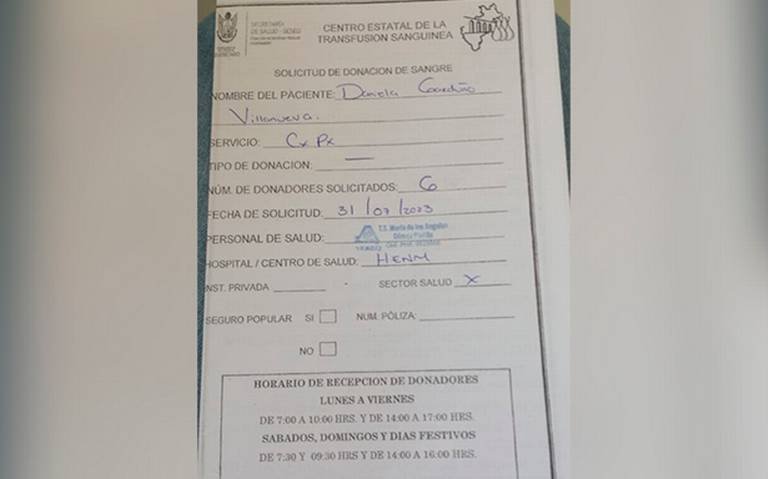 SECRETARÍA
DE SALUD - SENEQ
QUERÉTARO
CENTRO ESTATAL DE LA
TRANSFUSION SANGUINEA
SOLICITUD DE DONACION DE SANGRE
NOMBRE DEL PACIENTE: Daniela
Villanueva.
SERVICIO: Cx Px
TIPO DE DONACION: —
NÚM. DE DONADORES SOLICITADOS: 6
FECHA DE SOLICITUD: 31/07/2023
T.S. María de los Angeles
PERSONAL DE SALUD:
HOSPITAL / CENTRO DE SALUD: HENM
INST. PRIVADA - SECTOR SALUD X
SEGURO POPULAR SI NUM. PÓLIZA:
NO
HORARIO DE RECEPCION DE DONADORES
LUNES A VIERNES
DE 7:00 A 10:00 HRS. Y DE 14:00 A 17:00 HRS.
SABADOS, DOMINGOS Y DIAS FESTIVOS
DE 7:30 Y 09:30 HRS Y DE 14:00 A 16:00 HRS.